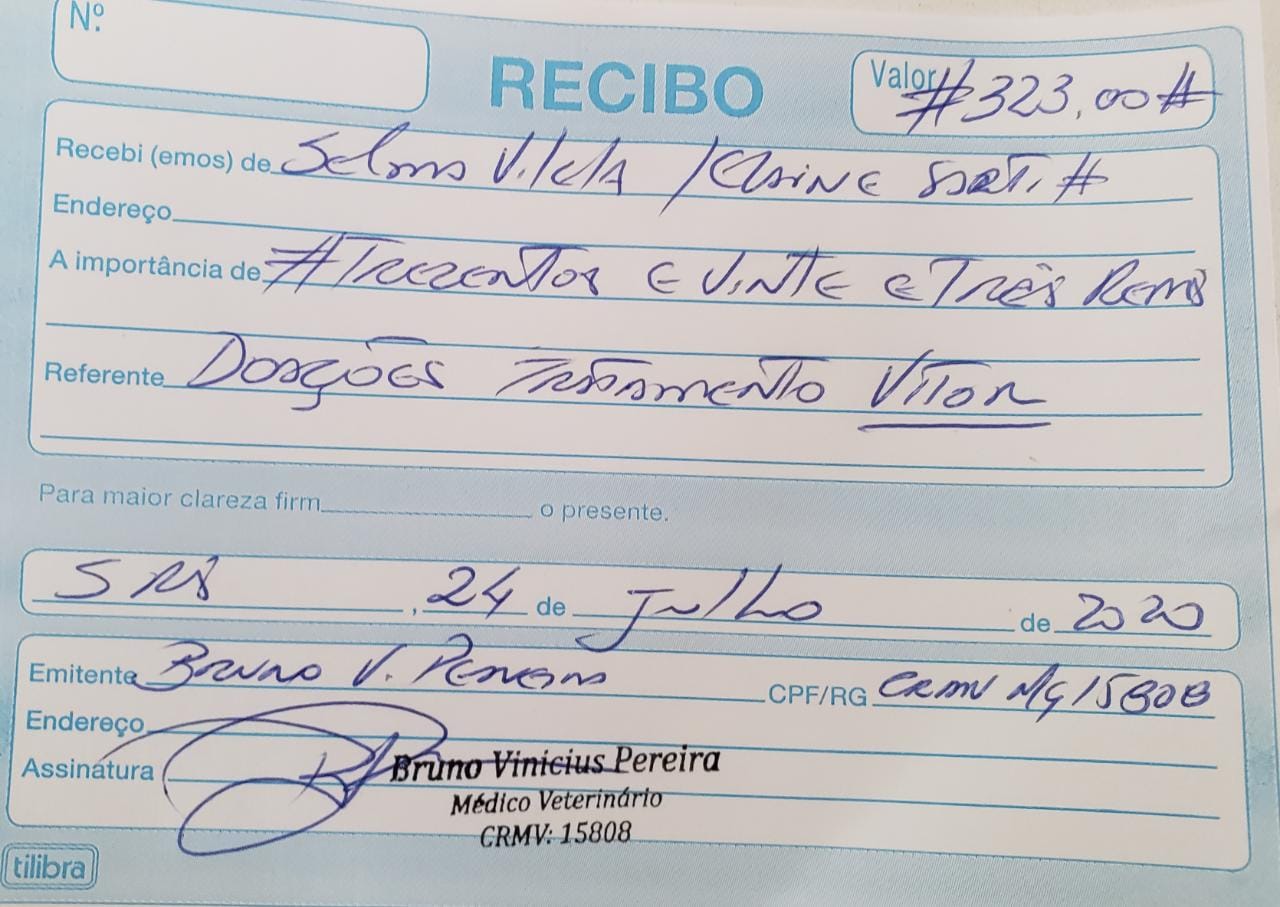 Nº
RECIBO
Valor #323,00#
Recebi (emos) de Selma Vilela / Elaine #
Endereço
A importância de #Trezentos e Vinte e Três Reais
Referente Doações Tratamento Vitor
Para maior clareza firm o presente.
SRS, 24 de Julho de 2020
Emitente Bruno V. Pereira CPF/RG CRMV MG 15808
Endereço
Assinatura
Bruno Vinicius Pereira
Médico Veterinário
CRMV: 15808
tilibra